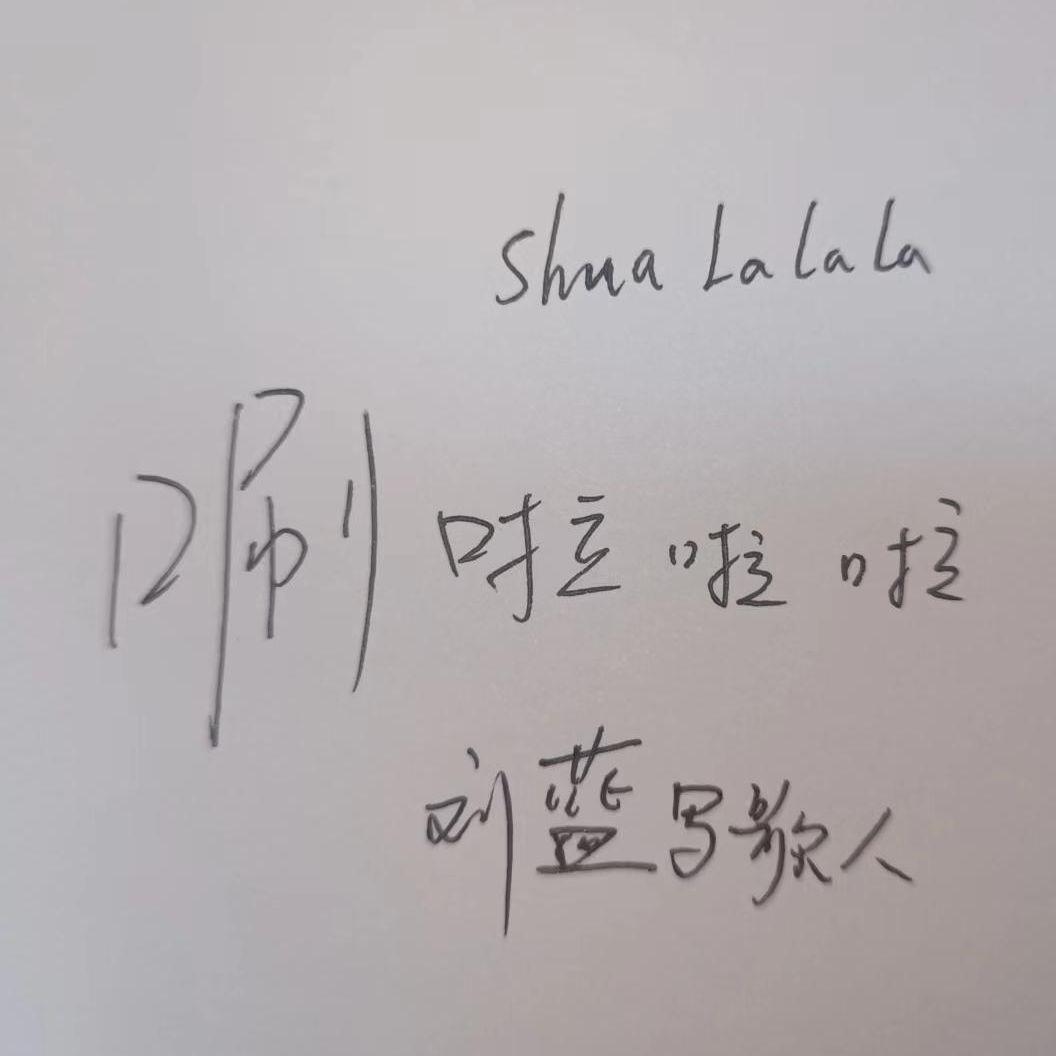 Shua La la la
唰啦啦啦
刘蓝写歌人